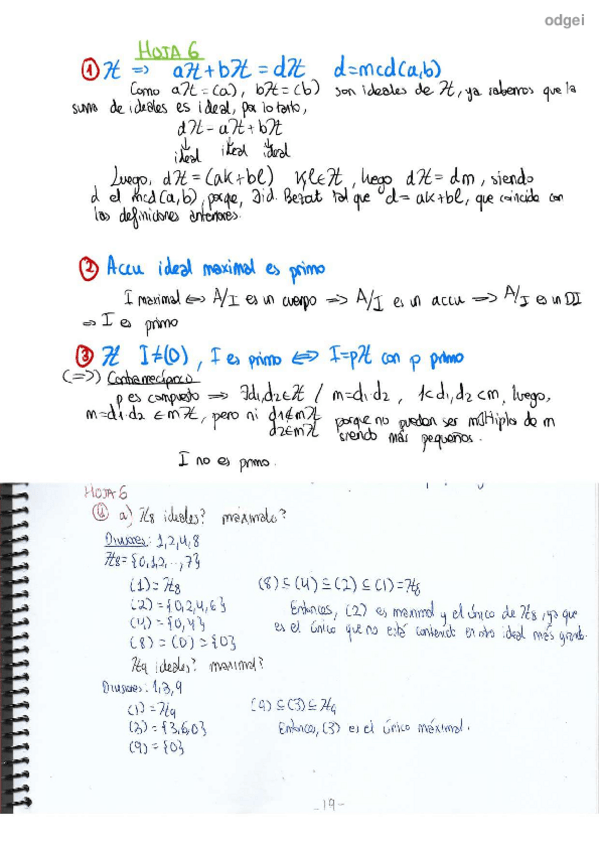 odgei
HOJA 6
① ℤ ⇒ aℤ + bℤ = dℤ d = mcd(a,b)
Como aℤ = (a), bℤ = (b) son ideales de ℤ, ya sabemos que la
suma de ideales es ideal, por lo tanto,
dℤ = aℤ + bℤ
↓ ↓ ↓
ideal ideal ideal
Luego, dℤ = (ak + bl) k,l ∈ ℤ, luego dℤ = dm, siendo
d el mcd(a,b), porque, ∃ id. Bezout tal que d = ak + bl, que coincide con
las definiciones anteriores.
② Accu ideal maximal es primo
I maximal ⇔ A/I es un cuerpo ⇒ A/I es un accu ⇒ A/I es un DI
⇒ I es primo
③ ℤ I ≠ (0), I es primo ⇔ I = pℤ con p primo
(⇒) Contrarrecíproco
p es compuesto ⇒ ∃d1,d2 ∈ ℤ / m = d1·d2, 1 < d1,d2 < m, luego,
m = d1·d2 ∈ mℤ, pero ni d1 ∉ mℤ porque no pueden ser múltiplos de m
d2 ∈ mℤ siendo más pequeños.
I no es primo.
HOJA 6
④ a) ℤ8 ideales? maximales?
Divisores: 1,2,4,8
ℤ8 = {0,1,2,...,7}
(1) = ℤ8 (8) ⊆ (4) ⊆ (2) ⊆ (1) = ℤ8
(2) = {0,2,4,6} Entonces, (2) es maximal y el único de ℤ8, ya que
(4) = {0,4} es el único que no está contenido en otro ideal más grande.
(8) = (0) = {0}
ℤ9 ideales? maximal?
Divisores: 1,3,9
(1) = ℤ9 (9) ⊆ (3) ⊆ ℤ9
(3) = {3,6,0} Entonces, (3) es el único máximal.
(9) = {0}
-19-